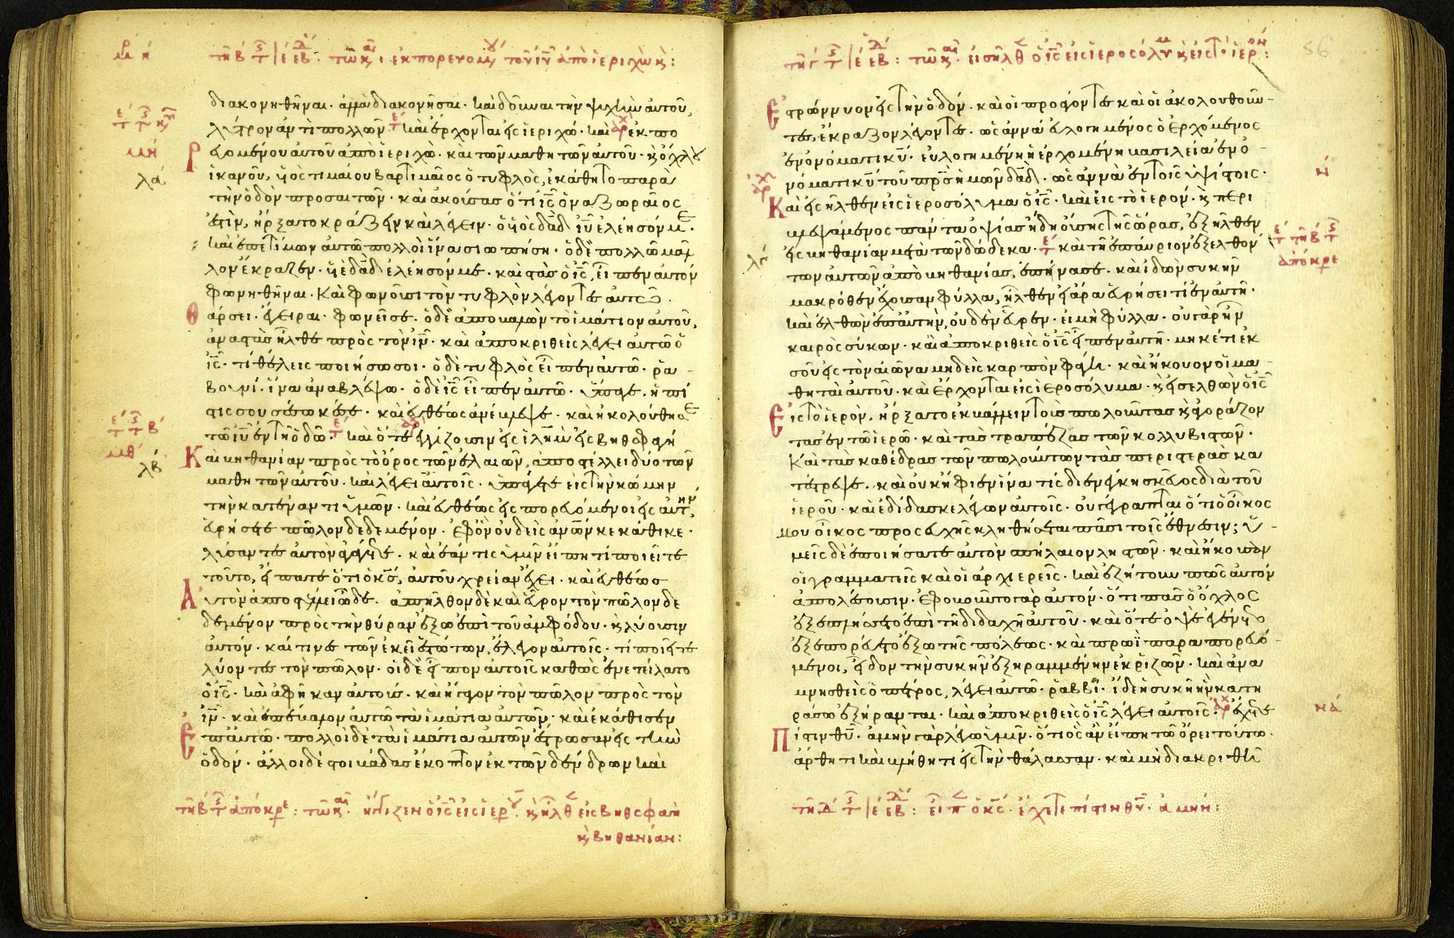 διακονηθῆναι· ἀλλὰ διακονῆσαι· καὶ δοῦναι τὴν ψυχὴν αὐτοῦ,
λύτρον ἀντὶ πολλῶν καὶ ἔρχονται εἰς ἱεριχώ· καὶ ἐκπο
ρευομένου αὐτοῦ ἀπὸ ἱεριχὼ· καὶ τῶν μαθητῶν αὐτοῦ· κ ὄχλου
ἱκανοῦ, ὑιὸς τιμαίου βαρτίμαῖος ὁ τυφλὸς, ἐκάθητο παρὰ
τὴν ὁδὸν προσαιτῶν· καὶ ἀκούσας ὅτι ις ὁ ναζωραῖος
ἐστὶν, ἤρξατο κράζειν καὶ λέγειν· ὁ υἱὸς δαδ ιυ ἐλέησόν με·
καὶ ἐπετίμων αὐτῶ πολλοὶ ἵνα σιωπήση· ὁ δὲ πολλῶ μᾶλ
λον ἔκραζεν· υἱὲ δαδ ἐλέησόν με· καὶ στὰς ὁ ις, εἶπεν αὐτὸν
φωνηθῆναι· Καὶ φωνοῦσι τὸν τυφλὸν λέγοντες αὐτῶ·
θάρσει· ἔγειραι· φωνεῖ σε· ὁ δὲ ἀποβαλὼν τὸ ἱμάτιον αὐτοῦ,
ἀναστὰς ἦλθε πρὸς τὸν ιν· καὶ ἀποκριθεὶς λέγει αὐτῶ ὁ
ις· τί θέλεις ποιήσω σοι· ὁ δὲ τυφλὸς εἶπεν αὐτῶ· ρα
βουνί· ἵνα ἀναβλέψω· ὁ δὲ ις εἶπεν αὐτῶ· ὕπαγε, ἡ πί
στις σου σέσωκέ σε· καὶ εὐθέως ἀνέβλεψε· καὶ ἠκολούθησε
τῶ ιυ ἐν τῆ ὁδῶ· καὶ ὅτε ἐγγίζουσιν εἰς ιλημ εἰς βηθσφαγὴ
Καὶ βηθανίαν πρὸς τὸ ὄρος τῶν ἐλαιῶν, ἀποστέλλει δύο τῶν
μαθητῶν αὐτοῦ· καὶ λέγει αὐτοῖς· ὑπάγετε εἰς τὴν κώμην
τὴν κατέναντι ὑμῶν· καὶ εὐθέως εἰσπορευόμενοι εἰς αὐτὴν,
εὑρήσετε πῶλον δεδεμένον· ἐφ ὃν οὐδεὶς ἀνων κεκάθικε·
λύσαντες αὐτὸν ἀγάγετε· καὶ ἐάν τις ὑμῖν εἴπη τί ποιεῖτε
τοῦτο, εἴπατε ὅτι ὁ κς, αὐτοῦ χρείαν ἔχει· καὶ εὐθέως
Αὐτὸν ἀποστέλλει ὧδε· ἀπῆλθον δὲ καὶ εὗρον τὸν πῶλον δε
δεμένον πρὸς τὴν θύραν ἔξω ἐπὶ τοῦ ἀμφόδου· κ λύουσιν
αὐτόν· καί τινες τῶν ἐκεῖ ἑστώτων, ἔλεγον αὐτοῖς· τί ποιεῖτε
λύοντες τὸν πῶλον· οἱ δὲ εἶπον αὐτοῖς καθὼς ἐνετείλατο
ὁ ις· καὶ ἀφῆκαν αὐτούς· καὶ ἤγαγον τὸν πῶλον πρὸς τὸν
ιν· καὶ ἐπέβαλον αὐτῶ τὰ ἱμάτια αὐτῶν· καὶ ἐκάθισεν
Ἐπ αὐτῶ· πολλοὶ δὲ τὰ ἱμάτια αὐτῶν ἔστρωσαν εἰς τὴν
ὁδόν· ἄλλοι δὲ στοιβάδας ἔκοπτον ἐκ τῶν δένδρων καὶ
κ βηθανίαν:
Ἐστρώννυον εἰς τὴν ὁδόν· καὶ οἱ προάγοντες καὶ οἱ ἀκολουθοῦν
τες, ἔκραζον λέγοντες· ὡσαννά εὐλογημένος ὁ ἐρχόμενος
ἐν ὀνόματι κυ· εὐλογημένη ἡ ἐρχομένη βασιλεία ἐν ὀ
νόματι κυ τοῦ πρς ἡμῶν δαδ· ὡσαννὰ ἐν τοῖς ὑψίστοις·
Καὶ εἰσῆλθεν εἰς ἱεροσόλυμα ὁ ις· καὶ εἰς τὸ ἱερόν· κ περι
βλεψάμενος πάντα ὀψίας ἤδη οὔσης τῆς ὥρας, ἐξῆλθεν
εἰς βηθανίαν μετὰ τῶν δώδεκα· καὶ τῆ ἐπαύριον ἐξελθόν
των αὐτῶν ἀπὸ βηθανίας, ἐπείνασε· καὶ ἰδὼν συκῆν
μακρόθεν ἔχουσαν φύλλα, ἦλθεν εἰ ἄρα εὑρήσει τί ἐν αὐτῆ·
καὶ ἐλθὼν ἐπ αὐτὴν, οὐδὲν εὗρεν· εἰ μὴ φύλλα· οὐ γὰρ ἦν
καιρὸς σύκων· καὶ ἀποκριθεὶς ὁ ις εἶπεν αὐτῆ· μηκέτι ἐκ
σοῦ εἰς τὸν αἰῶνα μηδεὶς καρπὸν φάγοι· καὶ ἤκουον οἱ μα
θηταὶ αὐτοῦ· καὶ ἔρχονται εἰς ἱεροσόλυμα· κ εἰσελθὼν ὁ ις
Εἰς τὸ ἱερὸν, ἤρξατο ἐκβάλλειν τοὺς πωλοῦντας κ ἀγοράζον
τας ἐν τῶ ἱερῶ· καὶ τὰς τραπέζας τῶν κολλυβιστῶν·
Καὶ τὰς καθέδρας τῶν πωλούντων τὰς περιστερὰς κα
τέστρεψε· καὶ οὐκ ἤφιεν ἵνα τὶς διενέγκη σκεῦος διὰ τοῦ
ἱεροῦ· καὶ ἐδίδασκε λέγων αὐτοῖς· οὐ γέγραπται ὅτι ὁ οἶκος
μου οἶκος προσευχῆς κληθήσεται πᾶσι τοῖς ἔθνεσιν; ὑ
μεῖς δὲ ἐποιήσατε αὐτὸν σπήλαιον ληστῶν· καὶ ἤκουσαν
οἱ γραμματεῖς καὶ οἱ ἀρχιερεῖς· καὶ ἐζήτουν πῶς αὐτὸν
ἀπολέσουσιν· ἐφοβοῦντο γὰρ αὐτόν· ὅτι πᾶς ὁ ὄχλος
ἐξεπλήσσετο ἐπὶ τῆ διδαχῆ αὐτοῦ· καὶ ὅτε ὀψὲ ἐγένετο
ἐξεπορεύετο ἔξω τῆς πόλεως· καὶ πρωῒ παραπορευό
μενοι, εἶδον τὴν συκῆν ἐξηραμμένην ἐκ ῥιζῶν· καὶ ἀνα
μνησθεὶς ὁ πέτρος, λέγει αὐτῶ· ῥαββί· ἴδε ἡ συκῆ ἣν κατη
ράσω ἐξήρανται· καὶ ἀποκριθεὶς ὁ ις λέγει αὐτοῖς· ἔχετε
Πίστιν θυ· ἀμὴν γὰρ λέγω ὑμῖν· ὅτι ὃς ἂν εἴπη τῶ ὄρει τούτω·
ἄρθητι καὶ βλήθητι εἰς τὴν θάλασσαν· καὶ μὴ διακριθῆ